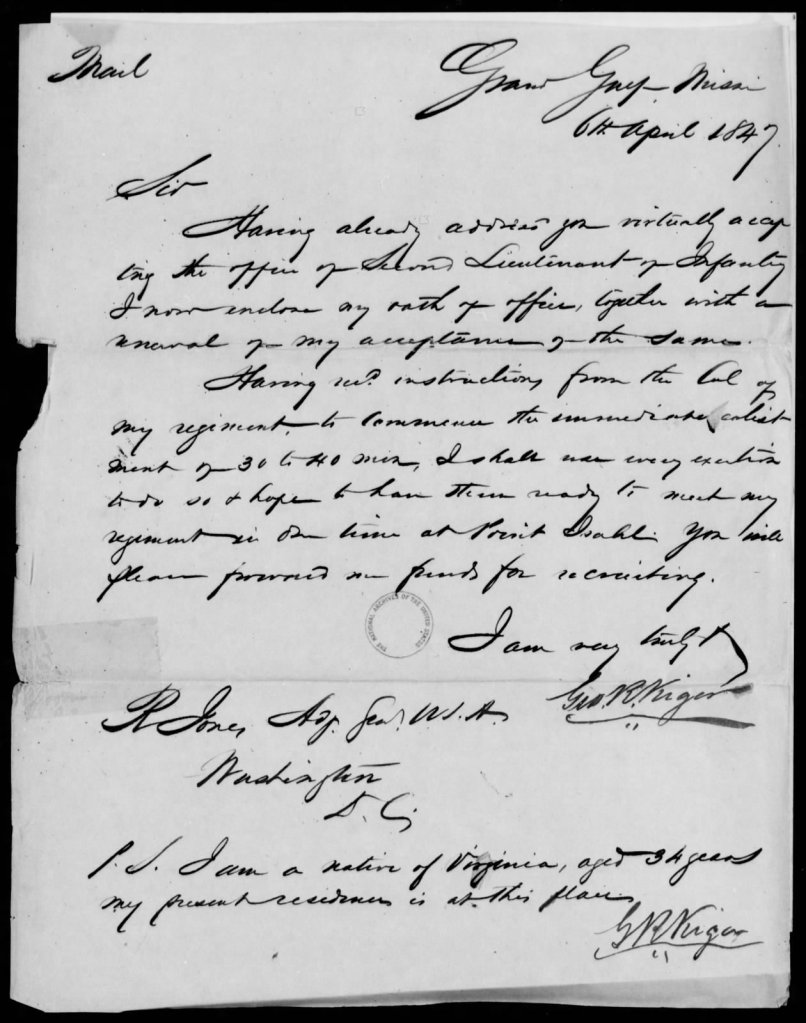 Mail
Grand Gulf Missi
6th April 1847.
Sir
Having already address you virtually accep
ting the office of Second Lieutenant of Infantry
I now enclose my oath of office, together with a
renewal of my acceptance of the same.
Having recd. instructions from the Col of
my regiment, to commence the immediate enlist
ment of 30 to 40 men, I shall use every exertion
to do so & hope to have them ready to meet my
regiment in due time at Point Isabel. You will
please forward me funds for recruiting.
THE NATIONAL ARCHIVES OF THE UNITED STATES
I am very truly &
Geo. R. Kiger
R Jones Adj. Genl. U.S.A.
Washington
D. C.
P. S. I am a native of Virginia, aged 34 years
my present residence is at this place
G R Kiger